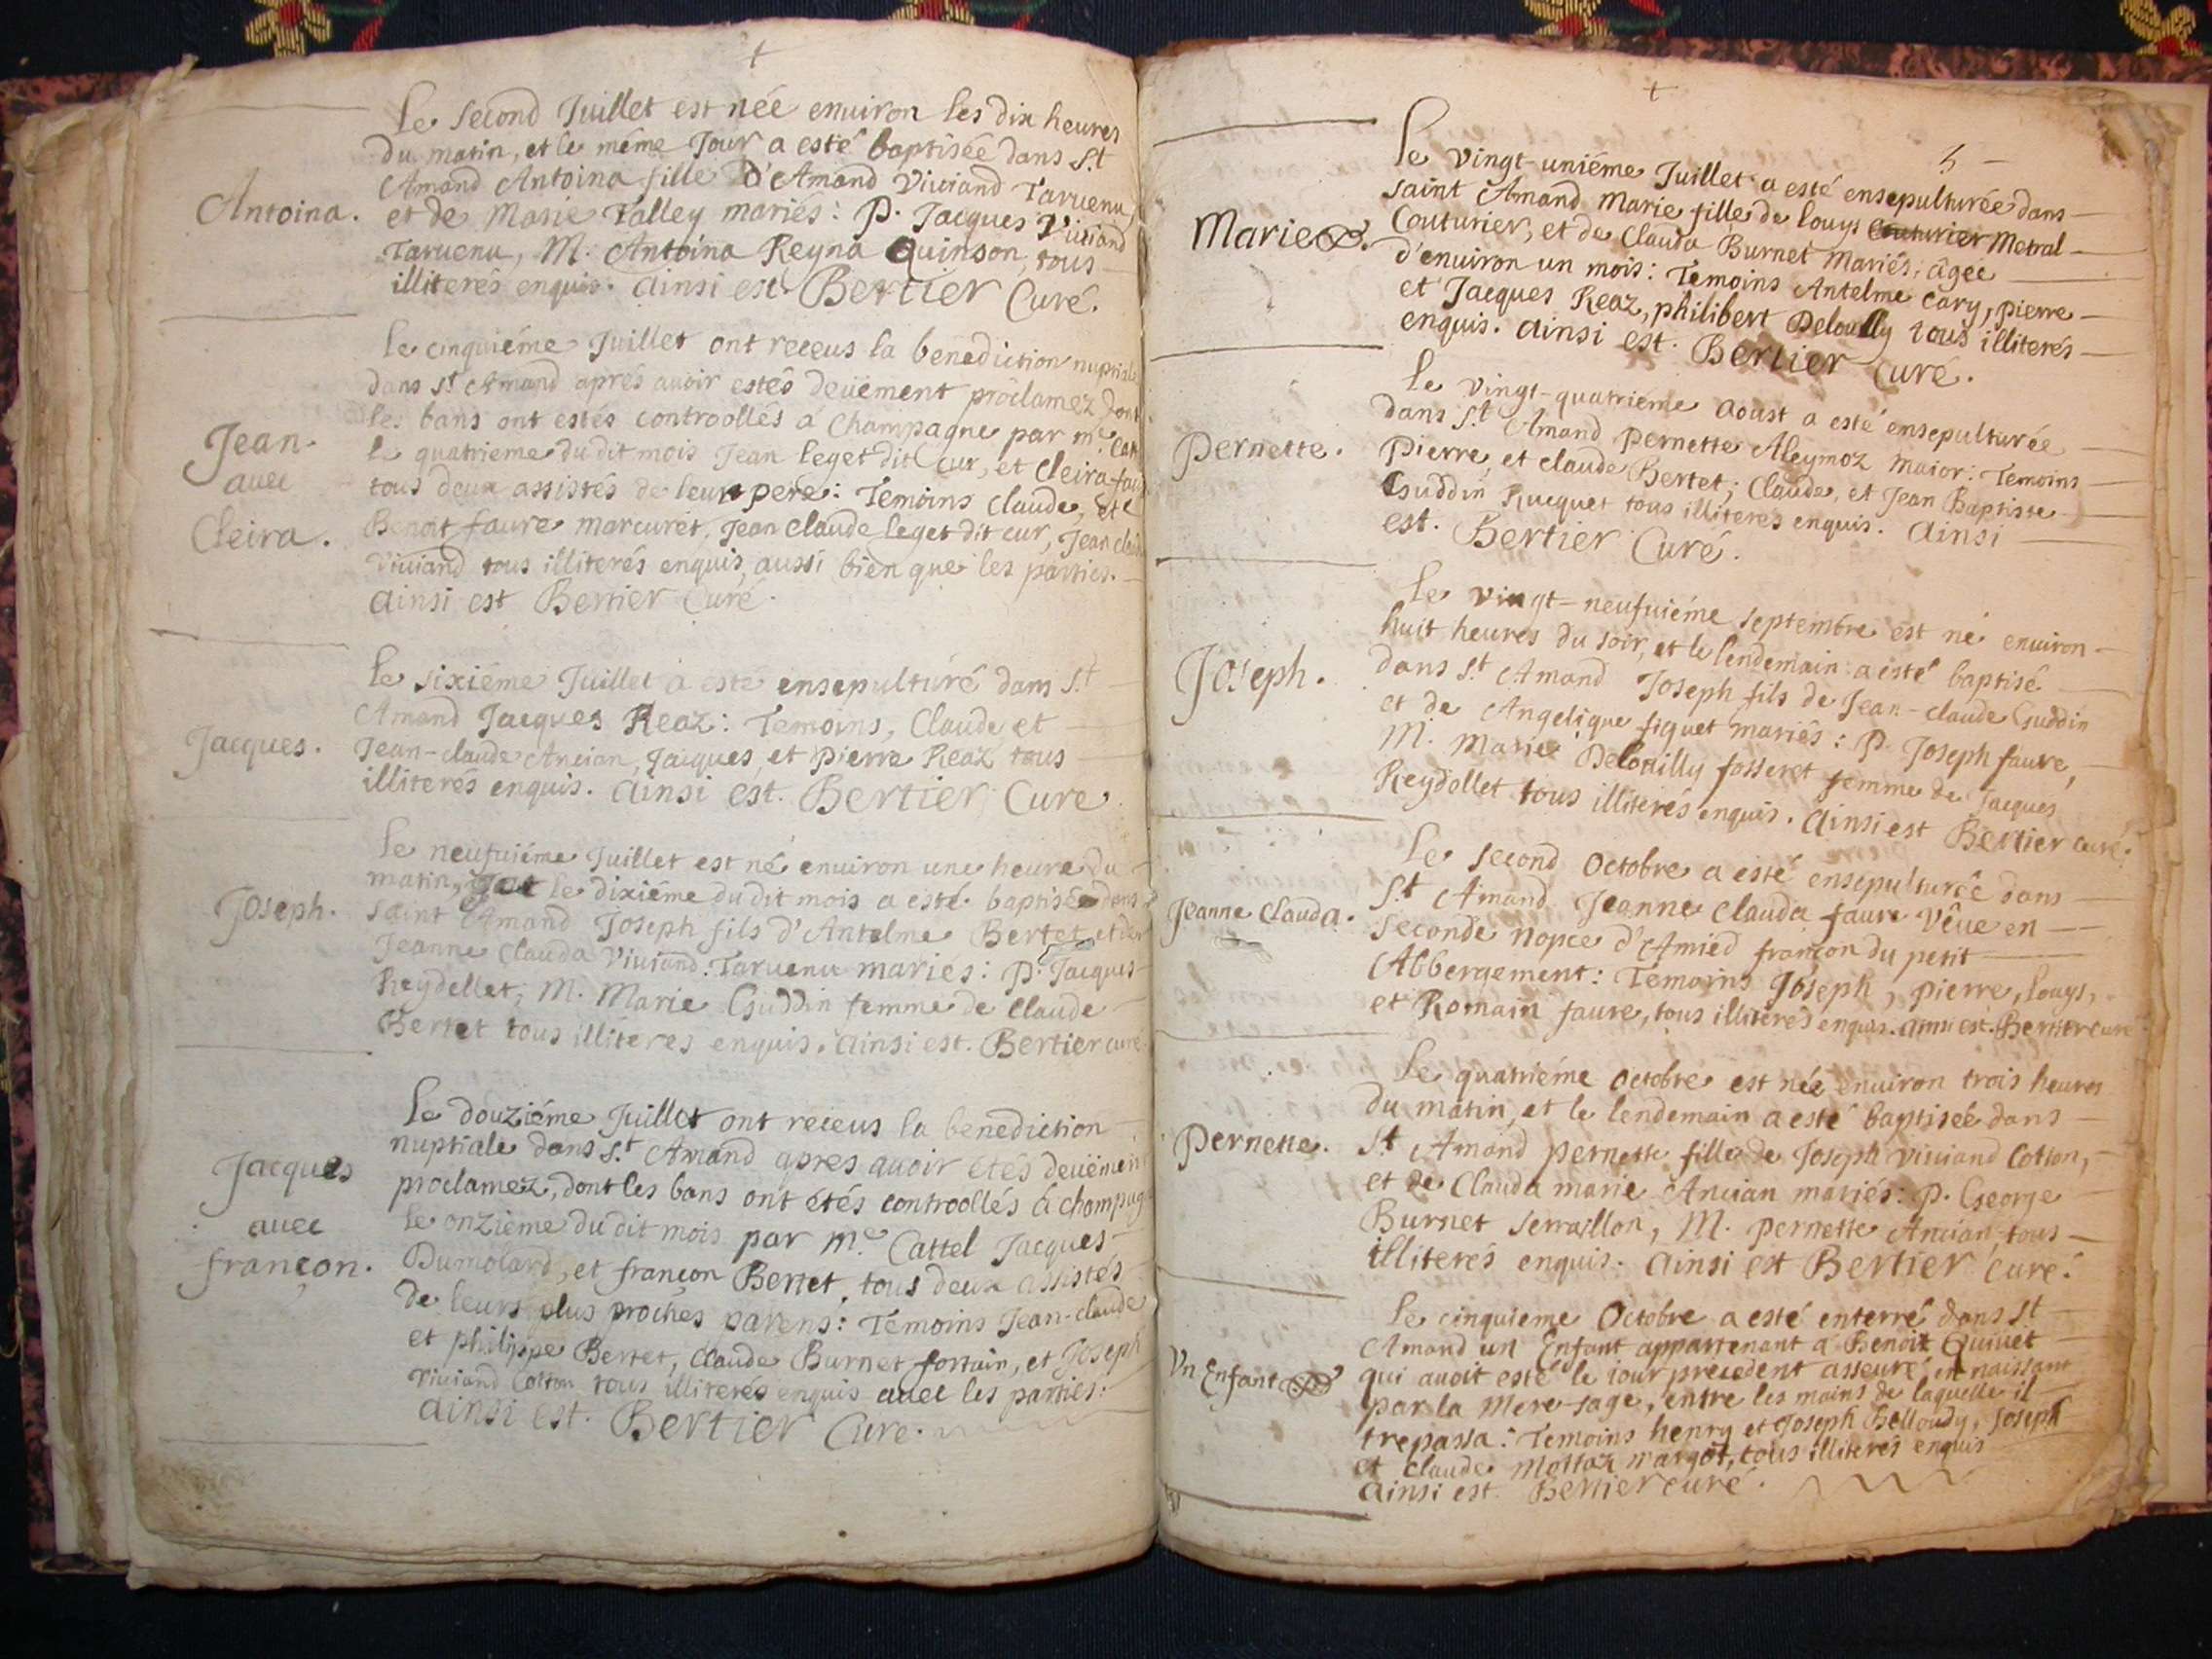 Le second Juillet est née enuiron les dix heures
du matin, et le méme Jour a esté baptisée dans S.t
Antoina.
Amand Antoina fille d'Amand Viuiand Taruenu,
et de Marie Talley mariés: P. Jacques Viuiand
Taruenu, M. Antoina Reyna Quinson, tous
illiterés enquis. ainsi est. Bertier Curé.
Le cinquiéme Juillet ont receus la benediction nuptiale
dans S.t Amand aprés auoir estés deüement proclamez dont
les bans ont estés controollés a Champagne par m.e
Jean
auec
Cleira.
le quatrieme du dit mois Jean leget dit Cur, et Cleira
tous deux assistés de leur pere: Temoins Claude, et
Benoit faure marcuret, Jean claude leget dit cur, Jean
Viuiand tous illiterés enquis, aussi bien que les parties.
ainsi est Bertier Curé.
Le sixiéme Juillet a esté ensepulturé dans S.t
Jacques.
Amand Jacques Reaz: Temoins, Claude et
Jean-claude Ancian, Jacques, et Pierre Reaz tous
illiterés enquis. ainsi est. Bertier Cure.
Le neufuiéme Juillet est né enuiron une heure du
matin, et le dixiéme du dit mois a esté baptisé dans
Joseph.
saint Amand Joseph fils d'Antelme Bertet et de
Jeanne Clauda Viuiand Taruenu mariés: P. Jacques
Reydellet, M. Marie Guddin femme de Claude
Bertet tous illiteres enquis. ainsi est. Bertier curé
Le douziéme Juillet ont receus la benediction
nuptiale dans S.t Amand apres auoir étés deüement
Jacques
auec
françon.
proclamez, dont les bans ont étés controollés á champag
le onziéme du dit mois par m.e Cattel Jacques
Dumolard, et françon Bertet, tous deux assistés
de leurs plus proches parens: Temoins Jean-claude
et philippe Bertet, Claude Burnet fortain, et Joseph
Viuiand Cotton tous illiterés enquis auec les parties:
ainsi est. Bertier Cure.
5
Le vingt-uniéme Juillet a esté ensepulturée dans
Marie
saint Amand Marie fille de louys Couturier Metral
Couturier, et de Clauda Burnet Mariés, âgée
d'enuiron un mois: Temoins Antelme Cary, pierre
et Jacques Reaz, philibert Delouilly tous illiterés
enquis. ainsi est. Bertier Curé.
Le vingt-quatriéme aoust a esté ensepulturée
Pernette.
dans S.t Amand Pernette Aleymoz maior: Temoins
Pierre, et claude Bertet; Claude, et Jean Baptiste
Guddin Rucquet tous illiterés enquis. ainsi
est. Bertier Curé.
Le vingt-neufuiéme septembre est né enuiron
huit heures du soir, et le lendemain a esté baptisé
Joseph.
dans S.t Amand Joseph fils de Jean-claude Guddin
et de Angelique figuet mariés: P. Joseph faure,
M. Marie Delouilly fosseret femme de Jacques
Reydollet tous illiterés enquis. ainsi est Bertier curé.
Le second Octobre a esté ensepulturée dans
Jeanne Clauda.
S.t Amand Jeanne Clauda faure Vêue en
seconde nopce d'Amied françon du petit
Abbergement: Temoins Joseph, pierre, louys,
et Romain faure, tous illiterés enquis. ainsi est. Bertier cure
Le quatriéme Octobre est née enuiron trois heures
du matin, et le lendemain a esté baptisée dans
Pernette.
S.t Amand pernette fille de Joseph Viuiand Cotton,
et de Clauda marie Ancian mariés: P. George
Burnet serraillon, M. pernette Ancian, tous
illiterés enquis. ainsi est Bertier curé.
Le cinquieme Octobre a esté enterré dans S.t
Vn Enfant
Amand un Enfant appartenant á Benoit Quinet
qui auoit esté le iour precedent asseuré en naissant
par la Mere-sage, entre les mains de laquelle il
trepassa: Temoins henry et Joseph Belloudy, Joseph
et claude Mottaz margot, tous illiterés enquis
ainsi est. Bertier curé.